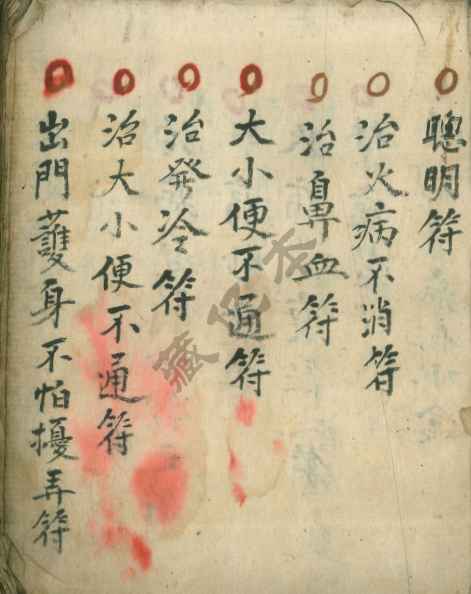 聰明符
治火病不消符
治鼻血符
大小便不通符
治發冷符
治大小便不通符
出門護身不怕擾弄符